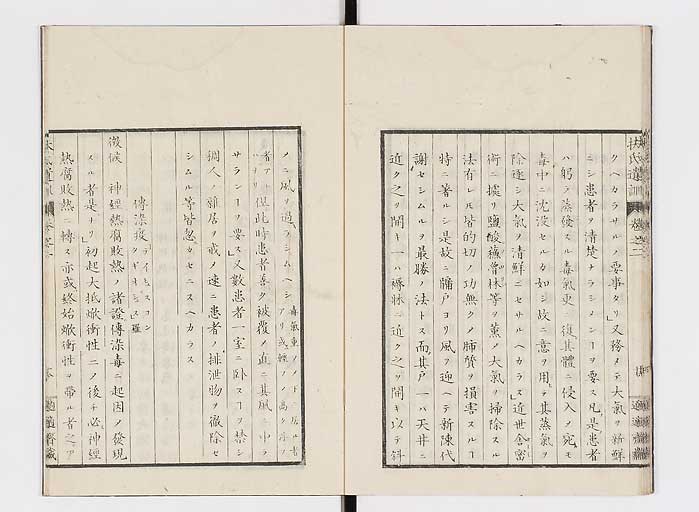 扶氏遺訓 卷之二
クヘカラサルノ要事タリ」又務メテ大氣ヲ新鮮
ニシ患者ヲ清楚ナラシメンヿヲ要ス凡ソ患者
ハ躬ラ蒸發スル毒氣更ニ復其體ニ侵入ノ宛モ
毒中ニ沈沒セルカ如シ故ニ意ヲ用テ其蒸氣ヲ
除逐シ大氣ヲ清鮮ニセサルヘカラス」近世舍密
術ニ據リ鹽酸蘊曾林等ヲ薫ノ大氣ヲ掃除スル
法有レ𪜈皆的切ノ功無クノ肺質ヲ損害スルヿ
特ニ著ルシ是故ニ牖戸ヨリ風ヲ迎ヘテ新陳代
謝セシムルヲ最勝ノ法トス而其戸一ハ天井ニ
近ク之ヲ開キ一ハ褥牀ニ近ク之ヲ開キ以テ斜
ノニ風ヲ過ラシムヘシ
者アヿ但此時患者善ク被覆ノ直ニ其風ニ中ラ
サランヿヲ要ス」又數患者一室ニ臥スヿヲ禁シ
稠人ノ雜居ヲ戒メ速ニ患者ノ排泄物ヲ徹除セ
シムル等皆忽カセニスヘカラス
傳染疫
徴候 神經熱腐敗熱ノ諸證傳染毒ニ起因ノ發現
スル者是ナリ」初起大抵焮衝性ニノ後チ必神經
熱腐敗熱ニ轉ス亦或終始焮衝性ヲ帶ル者之ア